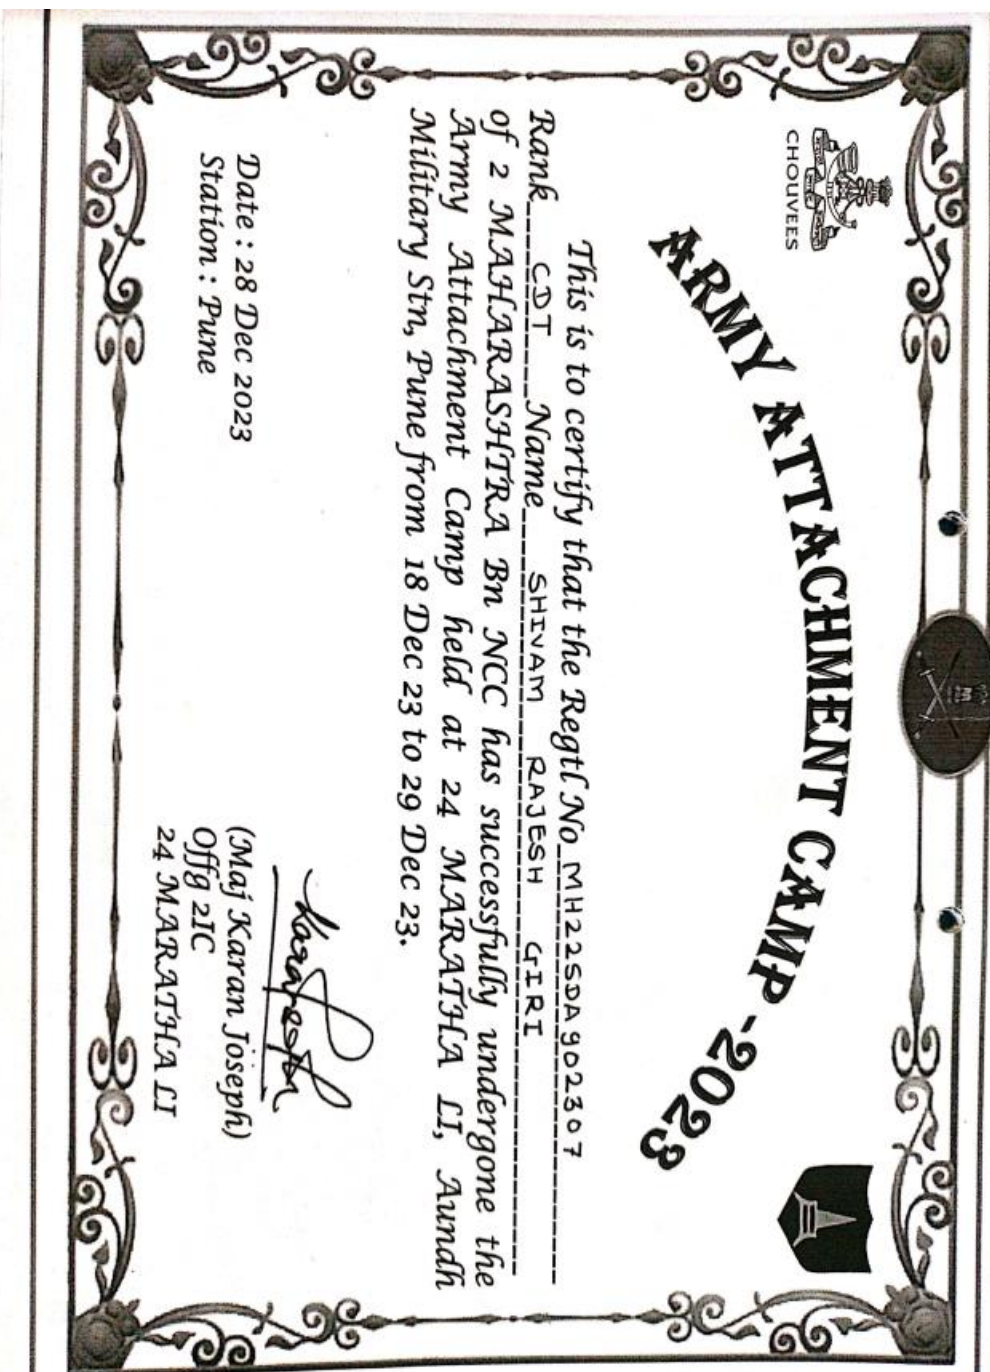 CHOUVEES
ARMY ATTACHMENT CAMP - 2023
This is to certify that the Regtl No MH22SDA902307
Rank CDT Name SHIVAM RAJESH GIRI
of 2 MAHARASHTRA Bn NCC has successfully undergone the
Army Attachment Camp held at 24 MARATHA LI, Aundh
Military Stn, Pune from 18 Dec 23 to 29 Dec 23.
Date : 28 Dec 2023
Station : Pune
(Maj Karan Joseph)
Offg 2IC
24 MARATHA LI